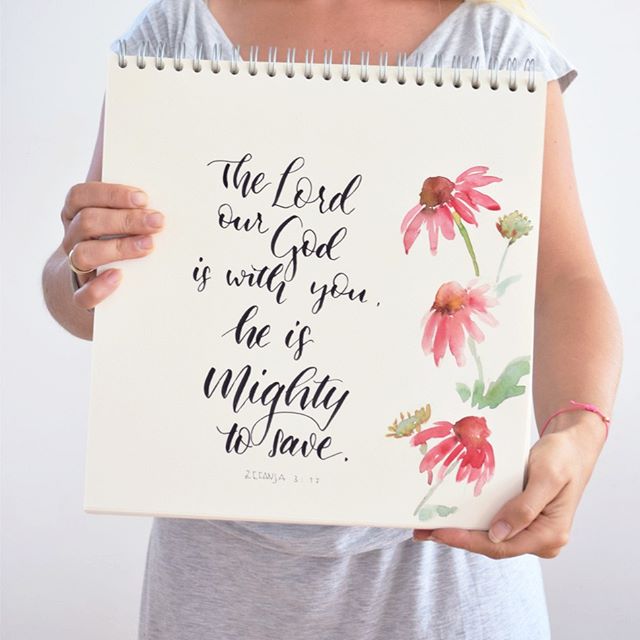 The Lord
our God
is with you,
he is
Mighty
to save.
ZEFANJA 3:17